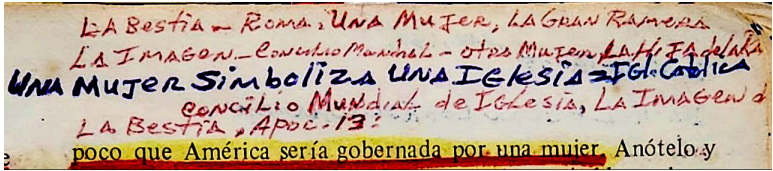 LA BESTIA - ROMA, UNA MUJER, LA GRAN RAMERA
LA IMAGEN - Concilio Mundial - otra Mujer, LA HIJA de la
UNA MUJER SIMBOLIZA UNA IGLESIA = IGL. Catolica
CONCILIO MUNDIAL de IGLESIA, LA IMAGEN d
LA BESTIA, APOC. 13:
e poco que América sería gobernada por una mujer. Anótelo y